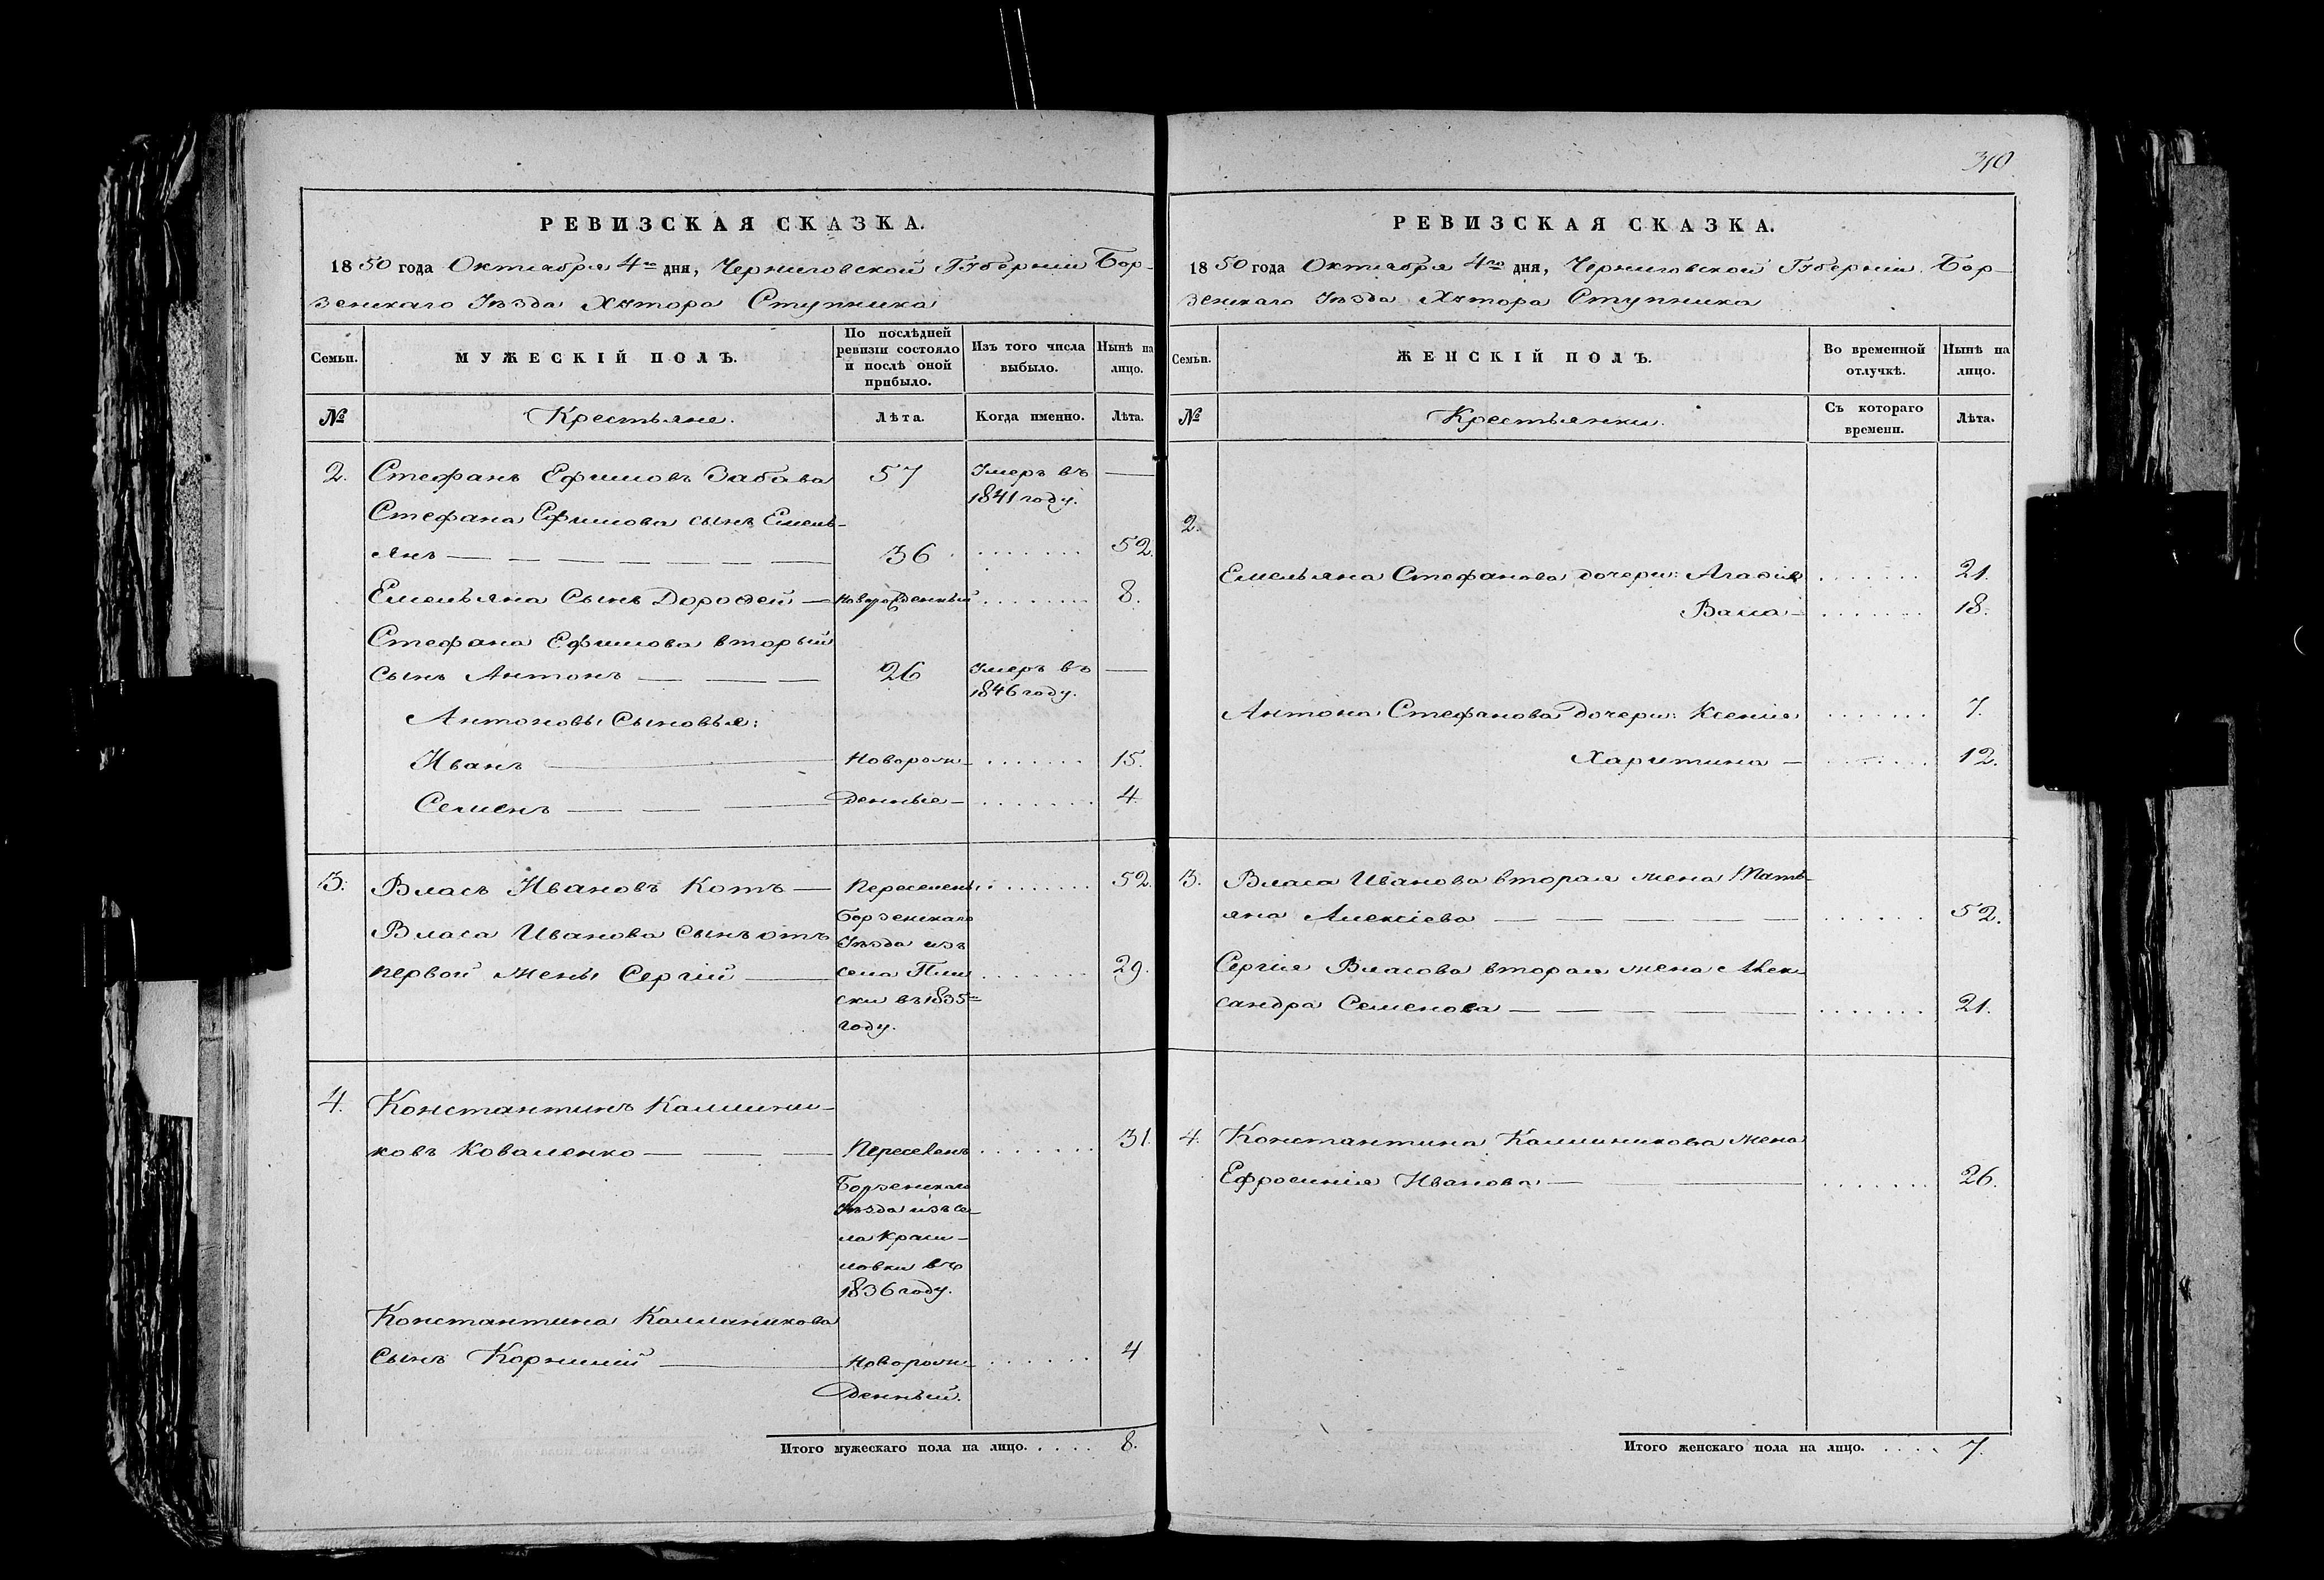 РЕВИЗСКАЯ СКАЗКА.
1850 года Октября 4го дня, Черниговской Губерніи Бор-
зенскаго Уѣзда Хутора Ступника
Семьи.
МУЖЕСКІЙ ПОЛЪ.
По послѣдней
ревизіи состояло
и послѣ оной
прибыло.
Изъ того числа
выбыло.
Нынѣ на
лицо.
№ Крестьяне. Лѣта. Когда именно. Лѣта.
2. Стефанъ Ефимовъ Забава 57 Умеръ въ —
1841 году.
Стефана Ефимова сынъ Емель-
янъ — — — — — — 36 . . . . . . . 52.
Емельяна Сынъ Дорофей — Новорожденный . . . . . . . 8.
Стефана Ефимова вторый
Сынъ Антонъ — — — 26 Умеръ въ —
1846 году.
Антоновы Сыновья:
Иванъ — Новорож- . . . . . . . 15.
Семенъ — — — денные - . . . . . . . 4.
3. Власъ Ивановъ Котъ — Переселенъ . . . . . . . 52.
Борзенскаго
Власа Иванова Сынъ отъ Уѣзда изъ
первой жены Сергій — села Пли . . . . . . . 29.
ски въ 1835м
году.
4. Константинъ Каллини-
ковъ Коваленко — — — Переселенъ . . . . . . . 31.
Борзенскаго
Уѣзда изъ се-
ла Краси-
ловки въ
1836 году.
Константина Каллиникова
Сынъ Корнилій — Новорож- . . . . . . . 4
денный.
Итого мужескаго пола на лицо. . . . . 8.
340
РЕВИЗСКАЯ СКАЗКА.
1850 года Октября 4го дня, Черниговской Губерніи Бор-
зенскаго Уѣзда Хутора Ступника
Семьи.
ЖЕНСКІЙ ПОЛЪ.
Во временной
отлучкѣ.
Нынѣ на
лицо.
№ Крестьянки. Съ котораго
времени. Лѣта.
2.
Емельяна Стефанова дочери: Агафія . . . . . . . 21.
Васса - . . . . . . . 18.
Антона Стефанова дочери: Ксенія . . . . . . . 7.
Харитина — . . . . . . . 12.
3. Власа Иванова вторая жена Тать-
яна Алексіева — — — — — . . . . . . 52.
Сергія Власова вторая жена Алек-
сандра Семенова — — — — — . . . . . . . 21.
4. Константина Каллиникова жена
Ефросинія Иванова — — . . . . . . . 26.
Итого женскаго пола на лицо. . . . . 7.